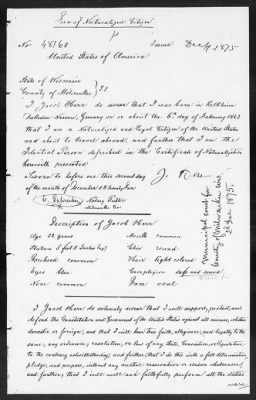 Son of Naturalized Citizen
No 45760 Issued Dec 4, 1875
United States of America
State of Wisconsin
County of Milwaukee } SS
I Jacob Herr do swear that I was born in
Germany on or about the 6th day of February 1823
that I am a Naturalized and Loyal Citizen of the United States
and about to travel abroad, and further that I am the
Identical Person described in the Certificate of Naturalization
herewith presented
Sworn to before me this second day J. Herr
of the month of December 18
Notary Public
Milwaukee Co.
Description of Jacob Herr
Age 52 years Mouth common
Stature 5 feet 8 Inches Eng. Chin round
Forehead common Hair light colored
Eyes blue Complexion
Nose common Face oval
County of Milwaukee Wis.
1875.
I Jacob Herr do solemnly swear that I will support, protect, and
defend the Constitution and Government of the United States against all enemies, whether
domestic or foreign, and that I will bear true faith, allegiance, and loyalty to the
same, any ordinance, resolution, or law of any State, Convention, or Legislature
to the contrary notwithstanding; and further, that I do this with a full determination,
pledge, and purpose, without any mental reservation or evasion whatsoever;
and further, that I will well and faithfully perform all the duties